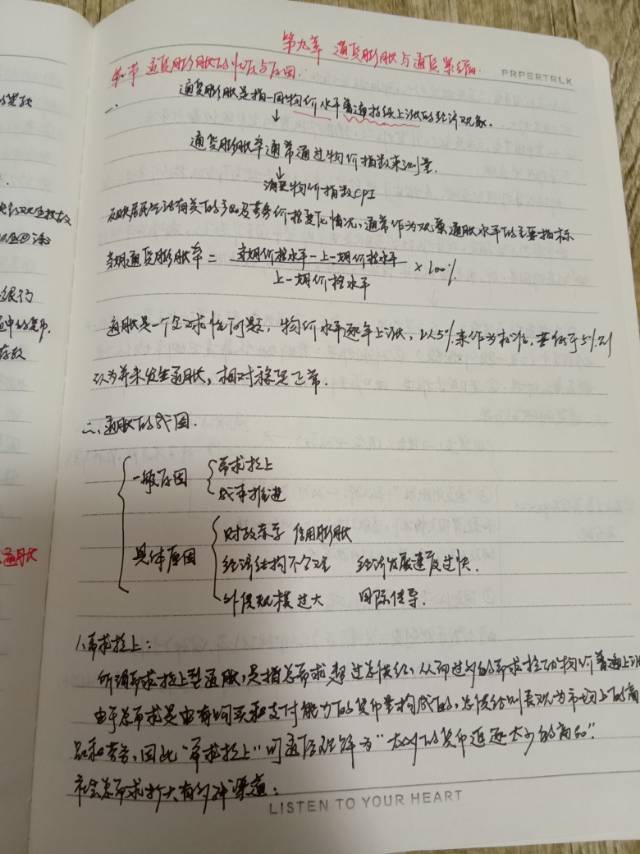 第九章 通货膨胀与通货紧缩
PAPERTALK
第一节 通货膨胀的性质与原因
一、通货膨胀是指一国物价水平普遍持续上涨的经济现象.
↓
通货膨胀率通常通过物价指数来测量.
↓
消费物价指数CPI
反映居民生活有关的产品及劳务价格变化情况,通常作为观察通胀水平的主要指标
本期通货膨胀率 = 本期价格水平-上一期价格水平 / 上一期价格水平 ×100%
通胀是一个全球性问题,物价水平逐年上涨,以5%来作为标准,要低于5%则
认为并未发生通胀,相对稳定正常.
二、通胀的成因.
一般原因 需求拉上
成本推进
具体原因 财政赤字 信用膨胀
经济结构不合理 经济发展速度过快.
外债规模过大 国际传导.
1.需求拉上:
所谓需求拉上型通胀,是指总需求超过总供给,从而过多的需求拉动物价普遍上涨
由于总需求是由有购买和支付能力的货币量构成的,总供给则表现为市场上的商
品和劳务,因此"需求拉上"可通俗理解为"太多的货币追逐太少的商品".
社会总需求扩大有多种渠道:
LISTEN TO YOUR HEART
的货币
存款
通胀